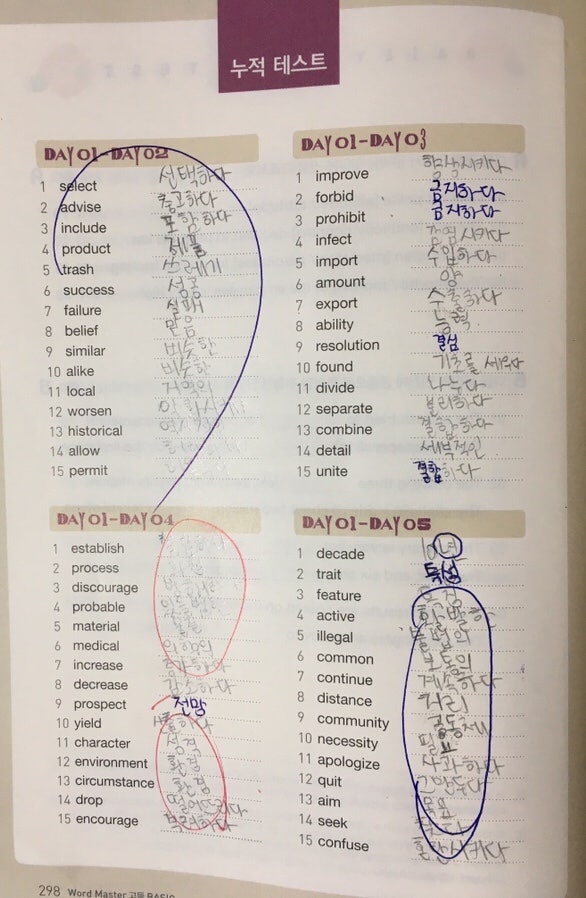 누적 테스트
DAY 01-DAY 02
1 select 선택하다
2 advise 충고하다
3 include 포함하다
4 product 제품
5 trash 쓰레기
6 success 성공
7 failure 실패
8 belief 믿음
9 similar 비슷한
10 alike 비슷한
11 local
12 worsen 악화시키다
13 historical
14 allow
15 permit
DAY 01-DAY 03
1 improve 향상시키다
2 forbid 금지하다
3 prohibit 금지하다
4 infect 감염시키다
5 import 수입하다
6 amount 양
7 export 수출하다
8 ability 능력
9 resolution 결심
10 found 기초를 세우다
11 divide 나누다
12 separate 분리하다
13 combine 결합하다
14 detail 세부적인
15 unite 결합하다
DAY 01-DAY 04
1 establish
2 process
3 discourage
4 probable
5 material
6 medical 의학의
7 increase 증가하다
8 decrease 감소하다
9 prospect 전망
10 yield
11 character 성격
12 environment 환경
13 circumstance 환경
14 drop 떨어뜨리다
15 encourage 격려하다
DAY 01-DAY 05
1 decade 10년
2 trait 특성
3 feature
4 active 활발한
5 illegal 불법의
6 common 보통의
7 continue 계속하다
8 distance 거리
9 community 공동체
10 necessity 필요
11 apologize 사과하다
12 quit 그만두다
13 aim 목표
14 seek
15 confuse 혼란시키다
298 Word Master 고등 BASIC